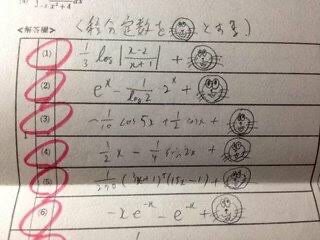 <解答欄> (積分定数を とする)
(1) 1/3 log|x-2/x+1| +
(2) e^x - 1/log2 · 2^x +
(3) -1/10 cos5x + 1/2 cosx +
(4) 1/2 x - 1/4 sin2x +
(5) (3x+1)^5(15x-1) +
(6) -xe^-x - e^-x +